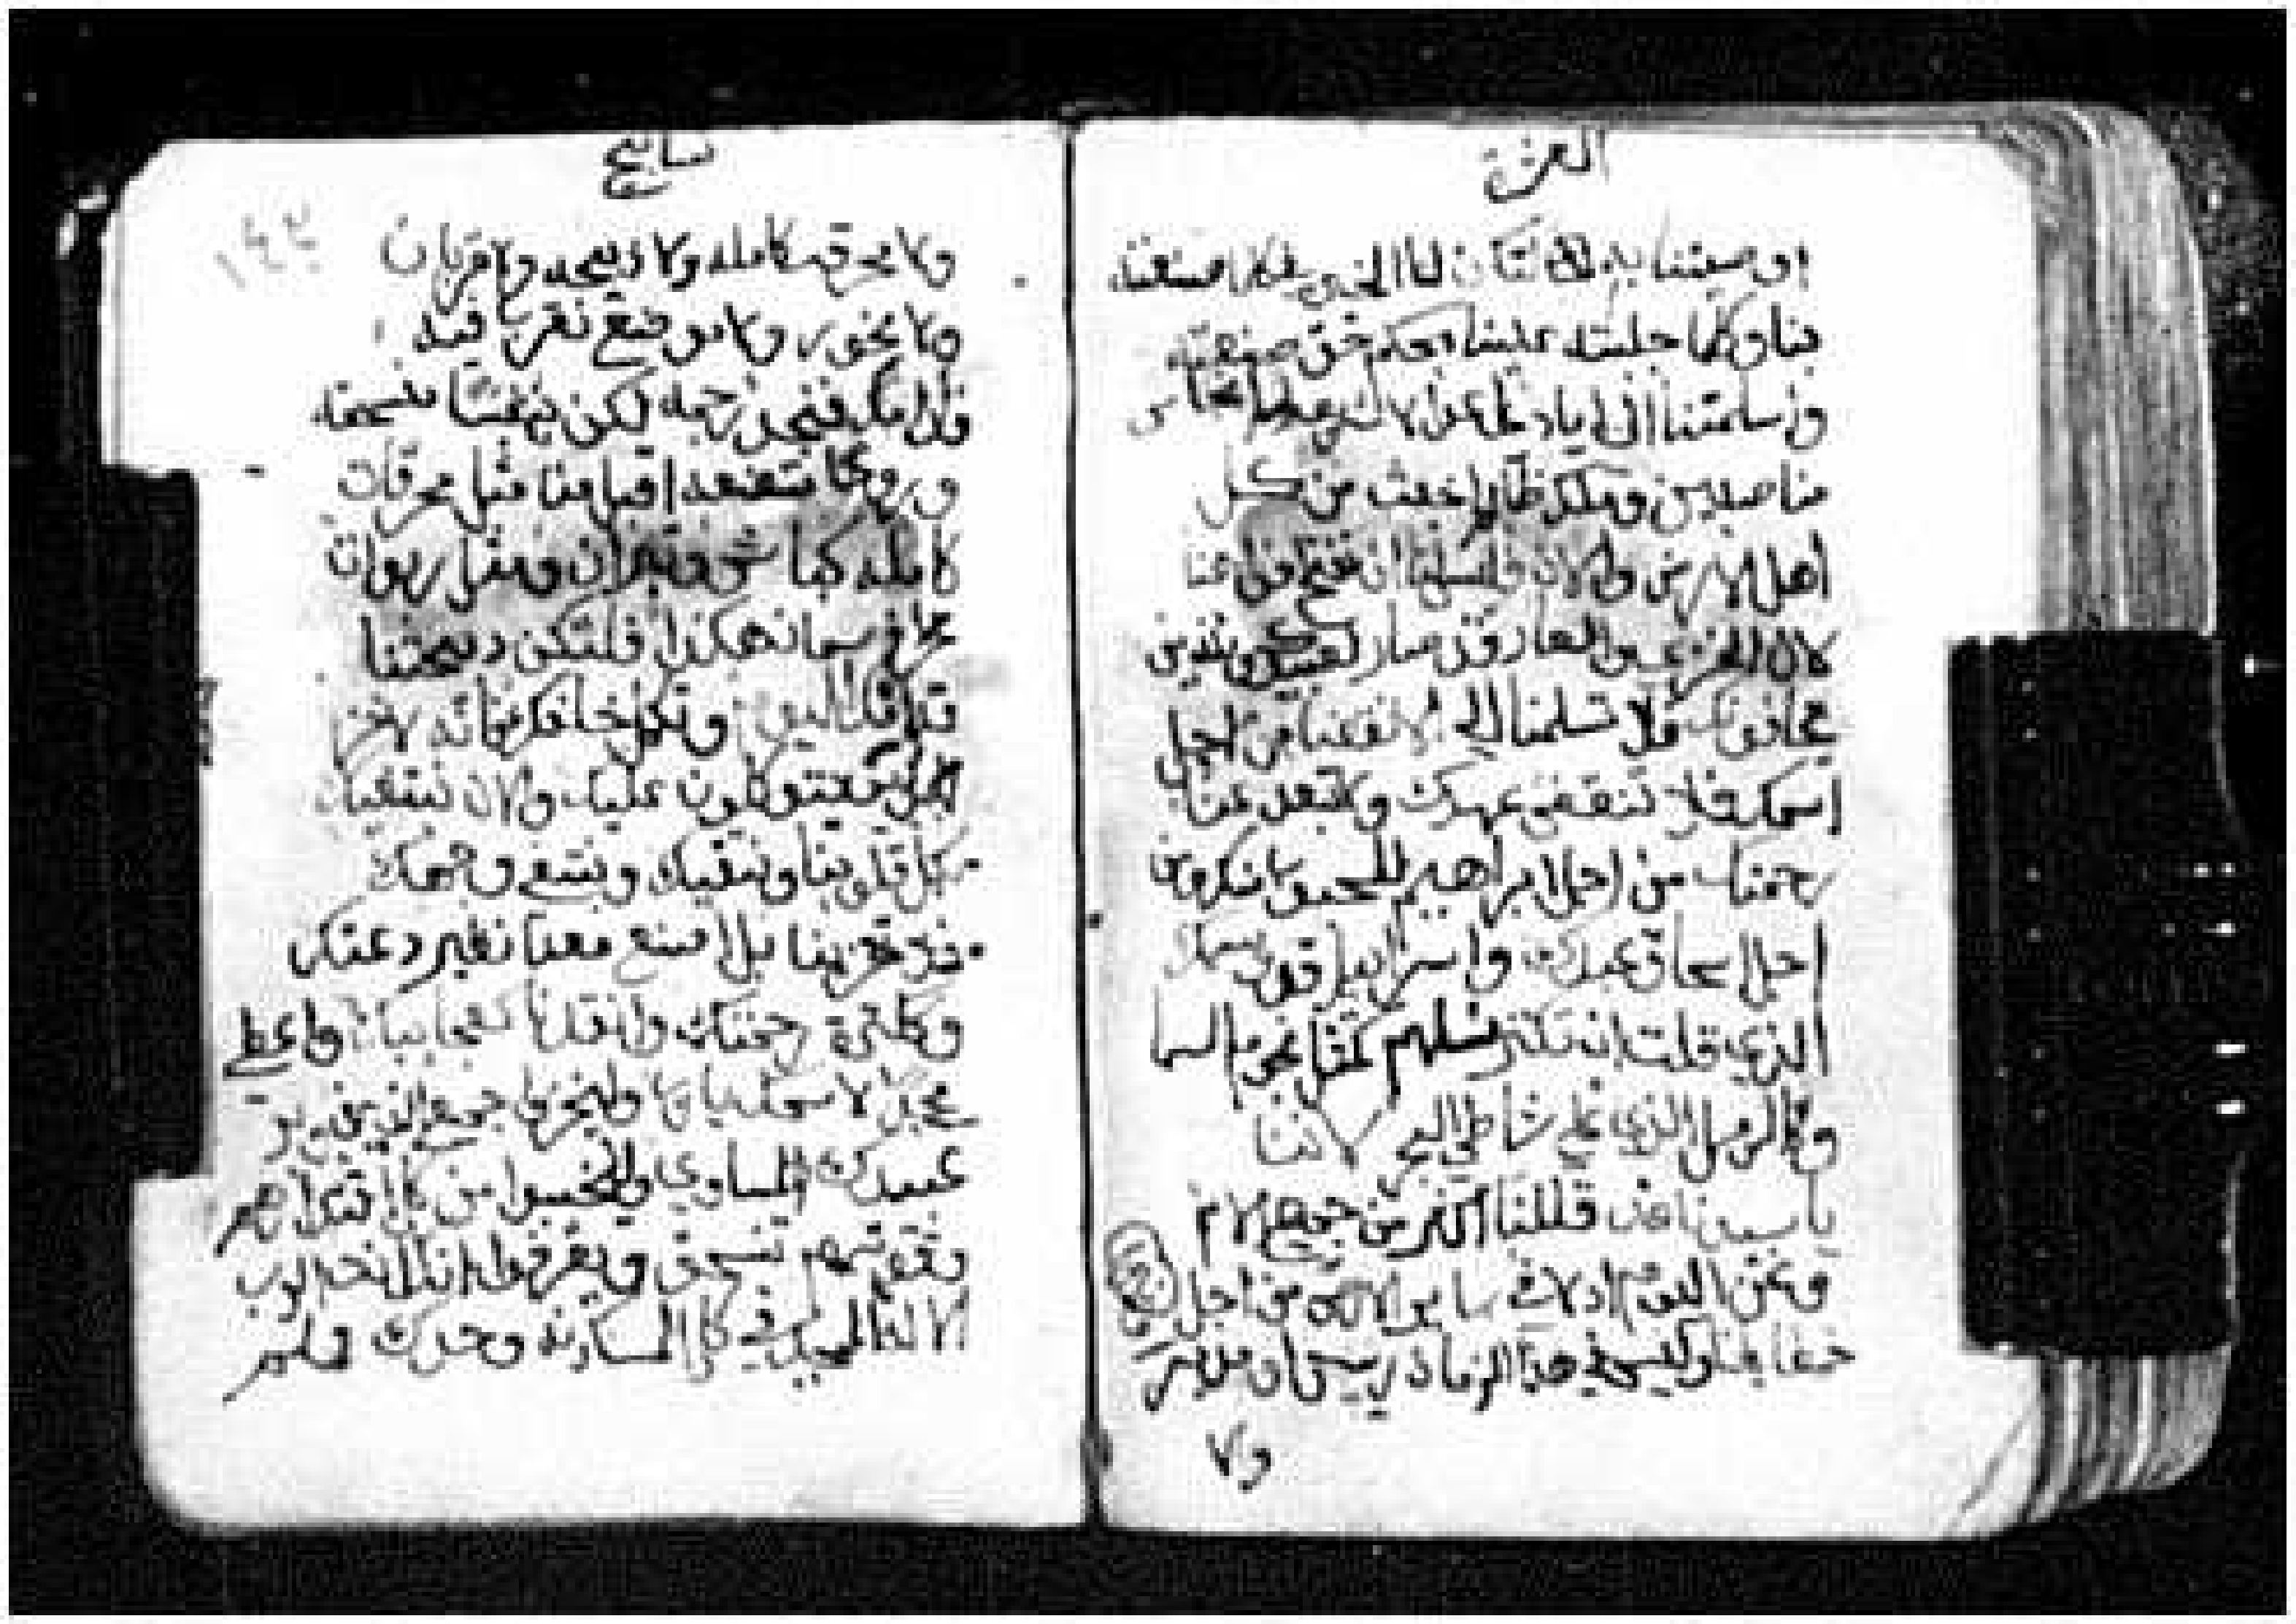 العزة
اوصيتنا به لكي تكون لنا الخيرات فكلما صنعته
بنا وكلما جلبته علينا بحكم حق صنعته
وسلمتنا الى ايادي
منا صلبين وملك ظالم اخبث من كل
اهل الارض والان فليس لنا ان نفتح فمنا
لان الخزي والعار قد صار لعبيدك وللذين
يخافونك فلا تسلمنا الى الانقضا من اجل
اسمك فلا تنقض عهدك ولا تبعد عنا
رحمتك من اجل ابراهيم المحبوب منك ومن
اجل اسحاق عبدك واسرائيل قديسك
الذي قلت انه تكثر نسلهم كمثل نجوم السما
وكالرمل الذي على شاطي البحر لاننا
يا سيدنا قد قللنا اكثر من جميع الامم
ونحن اليوم اذلا في ساير الارض من اجل
خطايانا وليس في هذا الزمان رييس ولا مدبر
ولا
تسابيح
١٤٢
ولا محرقه كامله ولا ذبيحه ولا قربان
ولا بخور ولا موضع نقرب فيه
قدامك فنجد رحمه لكن بنفس منسحقه
وروح متضعه اقبل منا مثل محرقات
كامله كباش وتيران ومثل ربوات
خراف سمان هكذا فلتكن ذبيحتنا
قدامك اليوم وتكمل خلفك فانه لا خزي
للمتوكلون عليك والان نتبعك
بكل قلوبنا ونتقيك ونبتغي وجهك
فلا تخزينا بل اصنع معنا نظير دعتك
وكثرة رحمتك وانقدنا كعجايبك واعطي
مجدا لاسمك يارب وليخزوا جميع الذين يرو
عبيدك المساوي وليخيبوا من كل اقتدارهم
وقوتهم تنسحق ويعرفوا انك انت الرب
الاله المجيد في كل المسكونه وحدك فلم